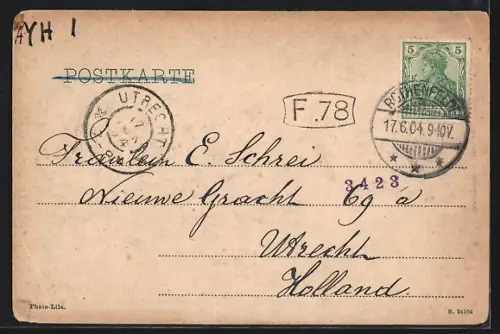 AYH 1
POSTKARTE
5 5
ROTHENFELDE
17.6.04. 9-10V.
UTRECHT
F.78
Fräulein E. Schrei
3423
Nieuwe Gracht 69 a
Utrecht
Holland.
Photo-Lith.